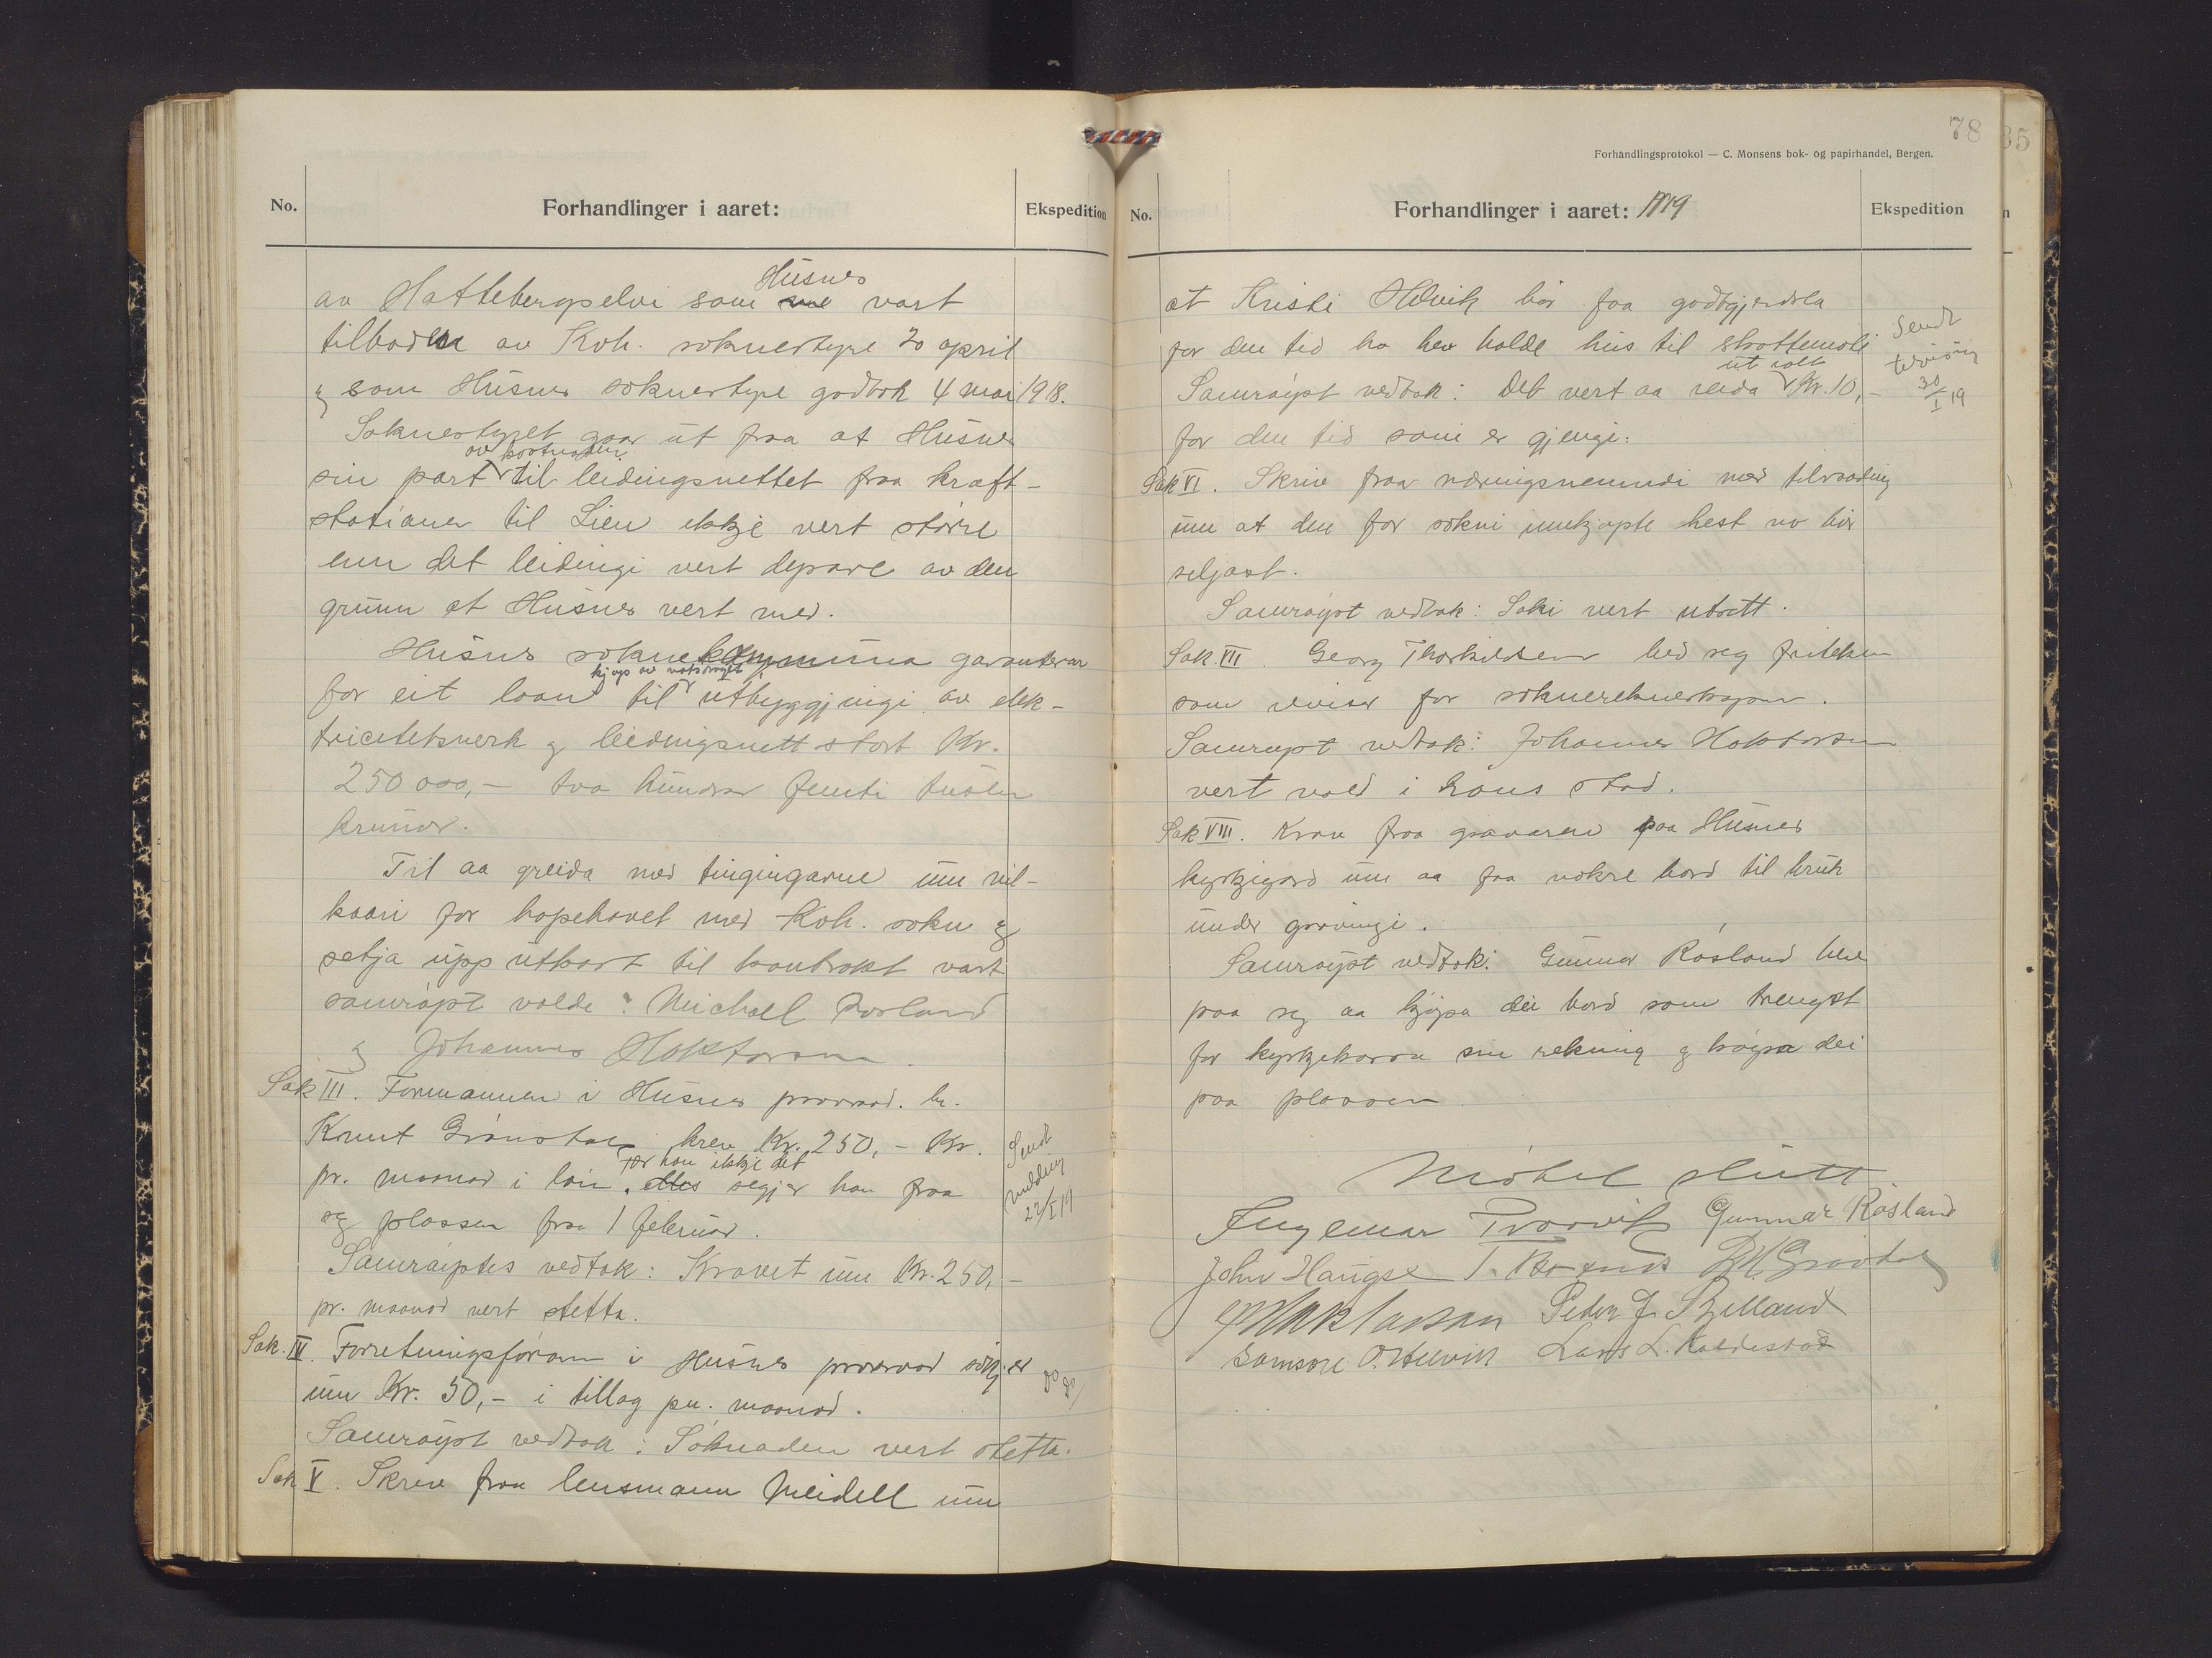 No.
Forhandlinger i aaret:
Ekspedition
av Hattebergselvi som Husnes vart
tilboden av Kvh. soknestyre 20 april
og som Husnes soknestyre godtok 4 mai 1918.
Soknestyret gaar ut fraa at Husnes
sin part av kostnaden til leidingsnettet fraa kraft-
stationen til Lien ikkje vert större
enn det leidingi vert dyrare av den
grunn at Husnes vert med.
Husnes soknekommuna garanterar
for eit laan til kjöp av vatsdraget, utbyggjingi av elek-
tricitetsverk og leidingsnett stort Kr.
250 000,- tvo hundrad femti tusen
krunor.
Til aa greida med tingingarne um vil-
kaari for hopehavet med Kvh. sokn og
setja upp utkast til kontrakt vart
samröystt valde: Michael
og Johannes Hoktason
Sak III. Formannen i Husnes provraad. hr.
Knut krev Kr. 250,- Kr.
pr. maanad i lön. Fær han ikkje det segjer han fraa
seg plassen fraa 1 februar.
Samröystes vedtok: Kravet um Kr. 250,-
pr. maanad vert stetta.
Sendt
melding
22/I 19
Sak. IV. Forretningsföraren i Husnes provraad sökjer
um Kr. 50,- i tillag pr. maanad.
do do
Samröyst vedtak: Söknaden vert stetta.
Sak V. Skriv fraa lensmann Meidell um
78
35
Forhandlingsprotokol — C. Monsens bok- og papirhandel, Bergen.
No.
Forhandlinger i aaret: 1919
Ekspedition
at Kristi Helvik bör faa godtgjersla
for den tid ho hev halde hus til skattemöti
Samröyst vedtak: Det vert aa reida ut ialt Kr. 10,-
for den tid som er gjengi.
Sendt
tilvising
30/I 19
Sak VI. Skriv fraa næringsnemndi med tilraading
um at den for sokni innkjöpte hest no bör
seljast.
Samröyst vedtak: Saki vert utsett.
Sak. VII. Georg Thorkildsen bed seg friteken
som revisor for soknerekneskapen.
Samröyst vedtak: Johannes Hoktason
vert vald i hans stad.
Sak VIII. Krav fraa gravaren paa Husnes
kyrkjegard um aa faa nokre bord til bruk
under gravingi.
Samröyst vedtak: Gunnar Røsland tek
paa seg aa kjöpa dei bord som trengst
for kyrkjekassa sin rekning og köyra dei
paa plassen.
Mötet slutt
Ingemar Tvorvik Gunnar Røsland
John Haugse
Peder J. Sjelland
Samson O. Helvik Lars L. Kaldestad